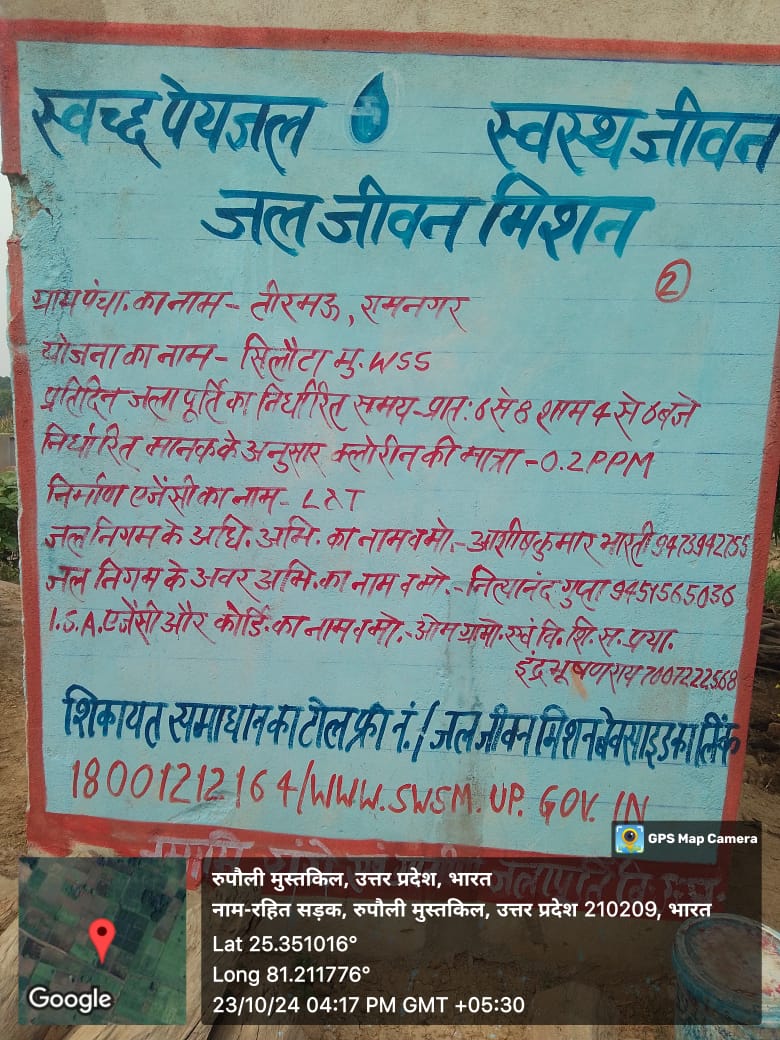 स्वच्छ पेयजल स्वस्थ जीवन
जल जीवन मिशन
2
ग्राम पंचा. का नाम - तीरमऊ, रामनगर
योजना का नाम - सिलौटा मु. WSS
प्रतिदिन जलापूर्ति का निर्धारित समय - प्रात: 6 से 8 शाम 4 से 6 बजे
निर्धारित मानक के अनुसार क्लोरीन की मात्रा - 0.2 PPM
निर्माण एजेंसी का नाम - L&T
जल निगम के अधि. अभि. का नाम व मो. - आशीष कुमार भारती 9473942755
जल निगम के अवर अभि. का नाम व मो. - नित्यानंद गुप्ता 9451565036
I.S.A. एजेंसी और कोर्डि. का नाम व मो. - ओम ग्रामो. एवं वि. शि. स. प्रया.
इंद्रभूषण राय 7007222568
शिकायत समाधान का टोल फ्री नं. / जल जीवन मिशन बेवसाइड का लिंक
18001212164/WWW.SWSM.UP.GOV.IN
GPS Map Camera
रुपौली मुस्तकिल, उत्तर प्रदेश, भारत
नाम-रहित सड़क, रुपौली मुस्तकिल, उत्तर प्रदेश 210209, भारत
Lat 25.351016°
Long 81.211776°
23/10/24 04:17 PM GMT +05:30
Google